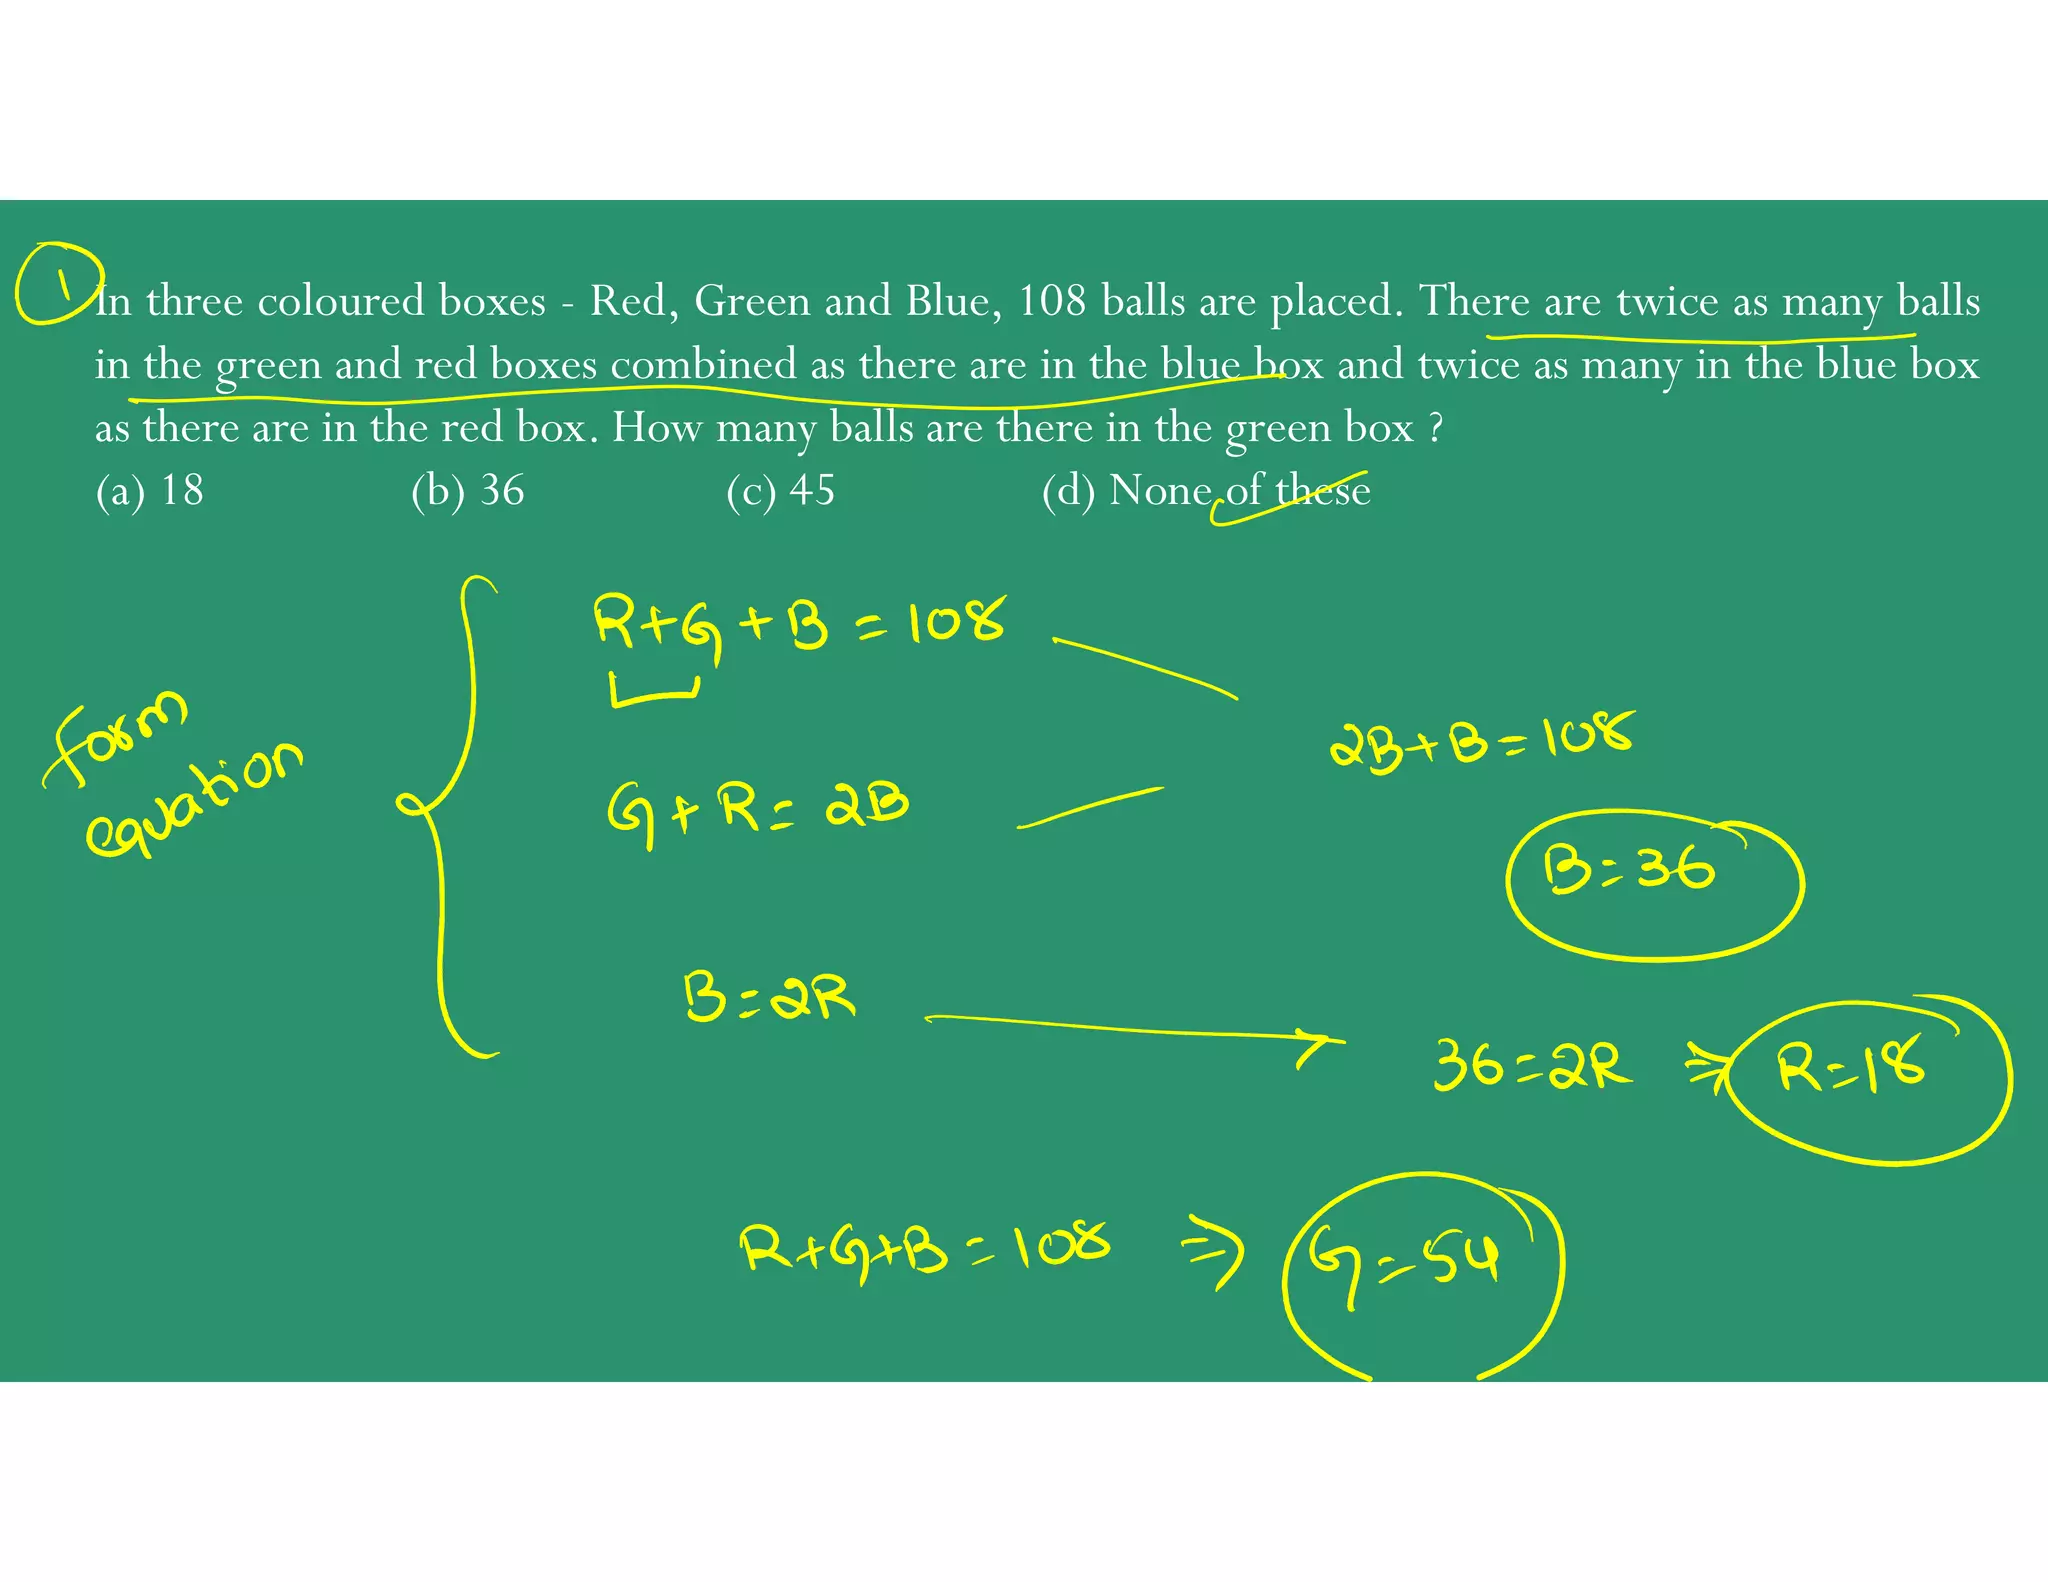 1
In three coloured boxes - Red, Green and Blue, 108 balls are placed. There are twice as many balls
in the green and red boxes combined as there are in the blue box and twice as many in the blue box
as there are in the red box. How many balls are there in the green box ?
(a) 18 (b) 36 (c) 45 (d) None of these
Form
equation
R+G+B=108
G+R=2B
2B+B=108
B=36
B=2R
36=2R ⇒ R=18
R+G+B=108 ⇒ G=54